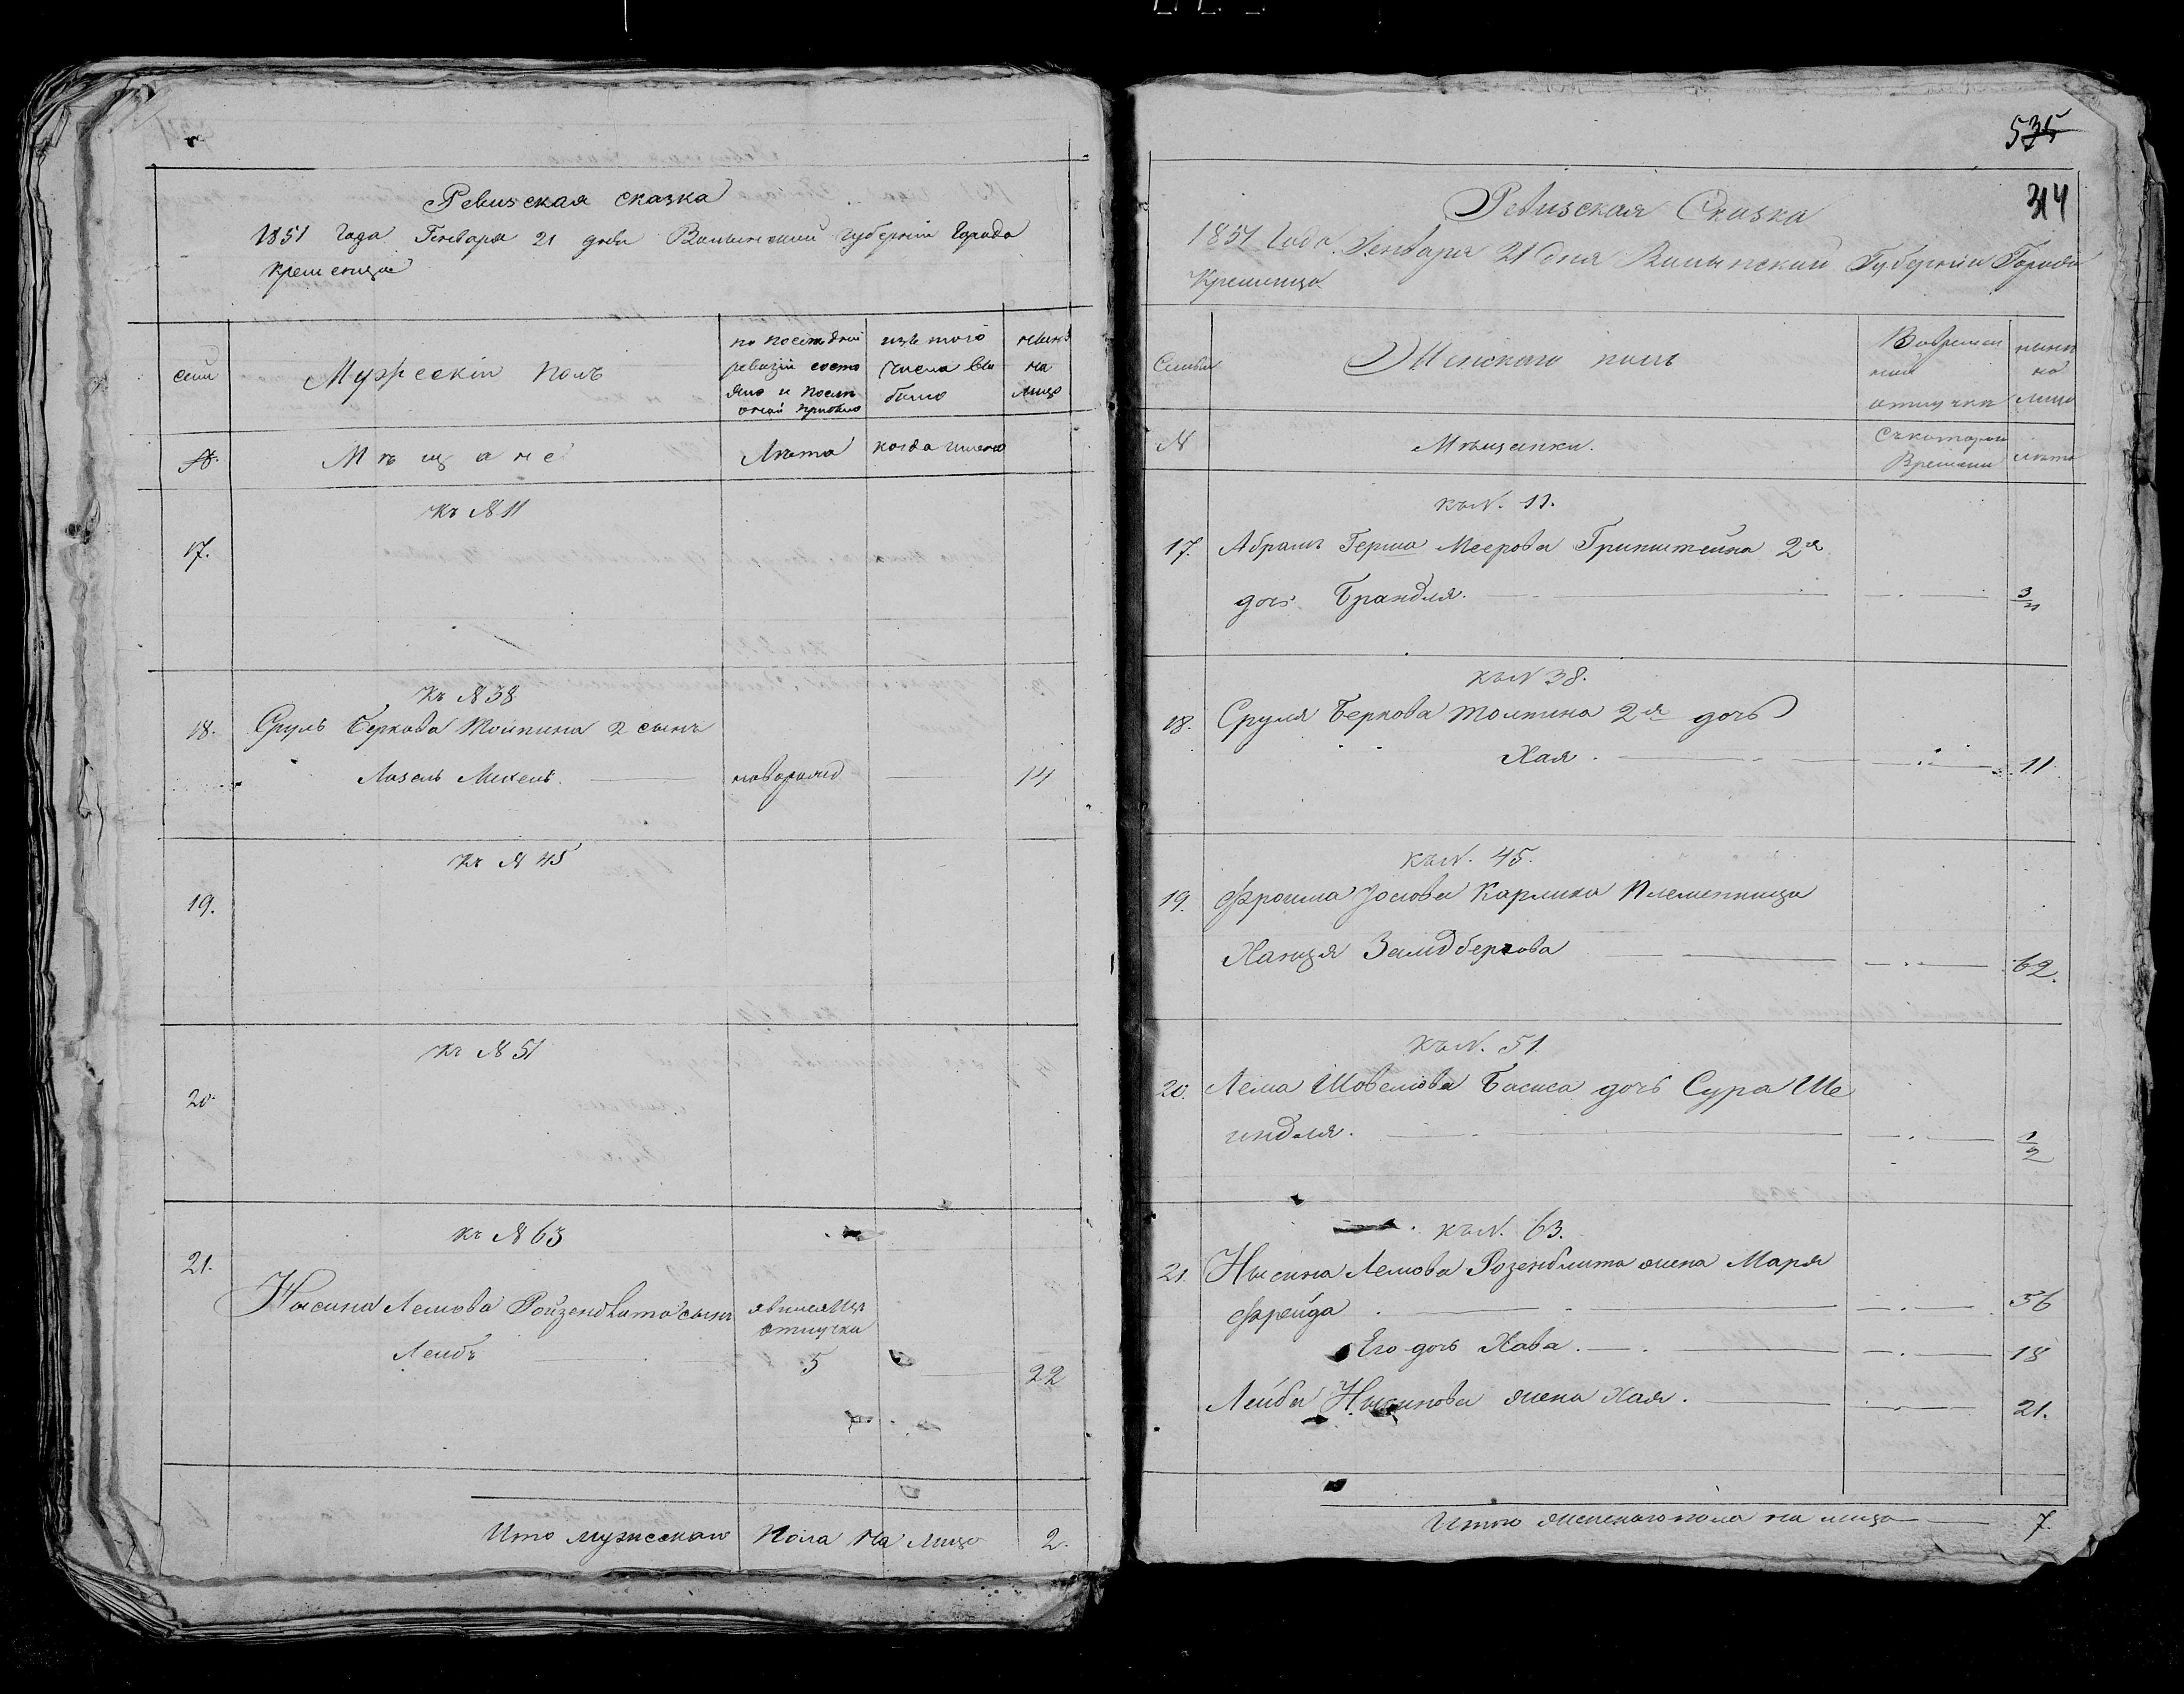 Ревизская сказка
1851 Года Генваря 21 дня Волынской Губернии Города
Кременца
семи
Мужескій полъ
по последней
ревизіи состо
яло и после
оной прибыло
изъ того
числа вы
было
ныне
на
лицо
№.
Мещане
Лета
когда именно
Къ №11
17.
Къ №38
18. Сруль Беркова Тойтина 2 сынъ
Лазель Михель новорожд 14
Къ № 45
19.
Къ №51
20.
Къ №63
21.
Нысина Лемова Ройзенблита сынъ явился изъ
отлучки
Лейбъ 5
22
Ито мужескаго пола на лицо 2.
535
314
Ревизская Сказка
1851 Года Генваря 21 дня Волынской Губерніи Города
Кременца
Семьи
Женскаго полъ
Вовремен
ной
отлучки
ныне
на
лицо
№
Мещанки.
Съкоторого
Времени
лета
къ№. 11.
17. Абрамъ Герша Меерова Гринштейна 2я
дочь Брандля. 3/11
къ№ 38.
18. Сруля Беркова Толтина 2я дочь
Хая. 11
къ№. 45.
19. Фроима Іослова Карлика Племенница
Ханця Замдбергова 62.
къ№. 51.
20. Лема Шовелова Басиса дочь Сура Ше
индля. 1/2
къ№. 63.
21. Нысина Лемова Розенблита жена Марья
Фрейда 56
Его дочь Хава. 18
Лейба Нысинова жена Хая. 21.
Итого женскаго пола на лицо 7.